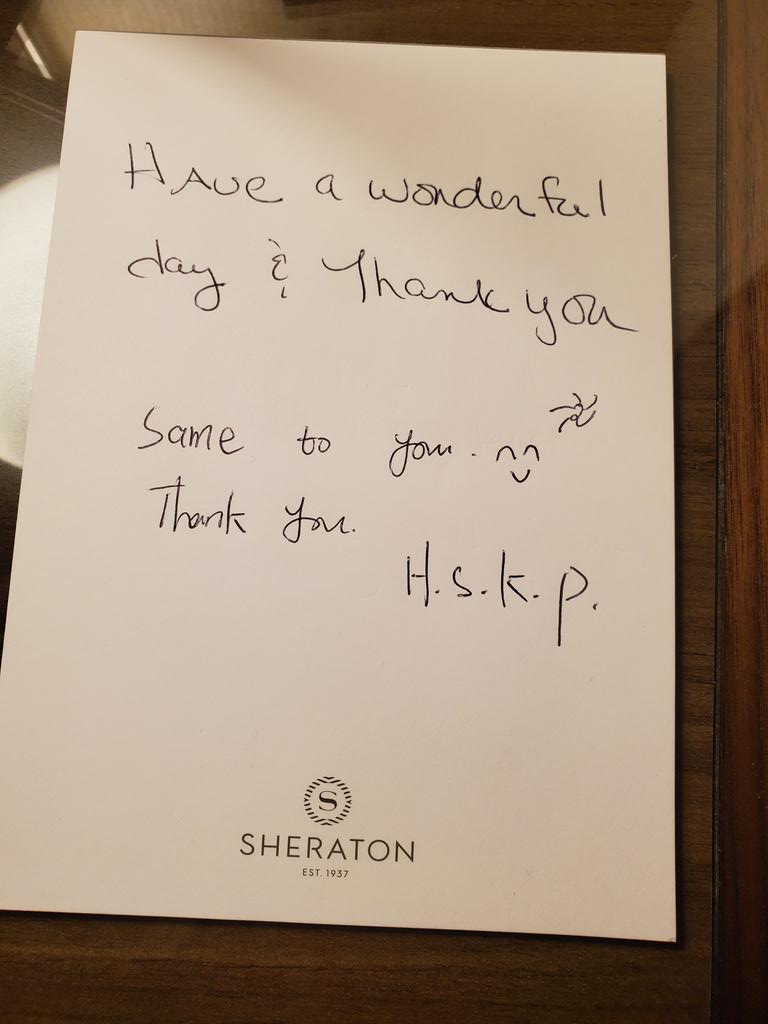 Have a wonderful
day & Thank you
Same to you.
Thank you.
H.s.k.p.
S
SHERATON
EST. 1937